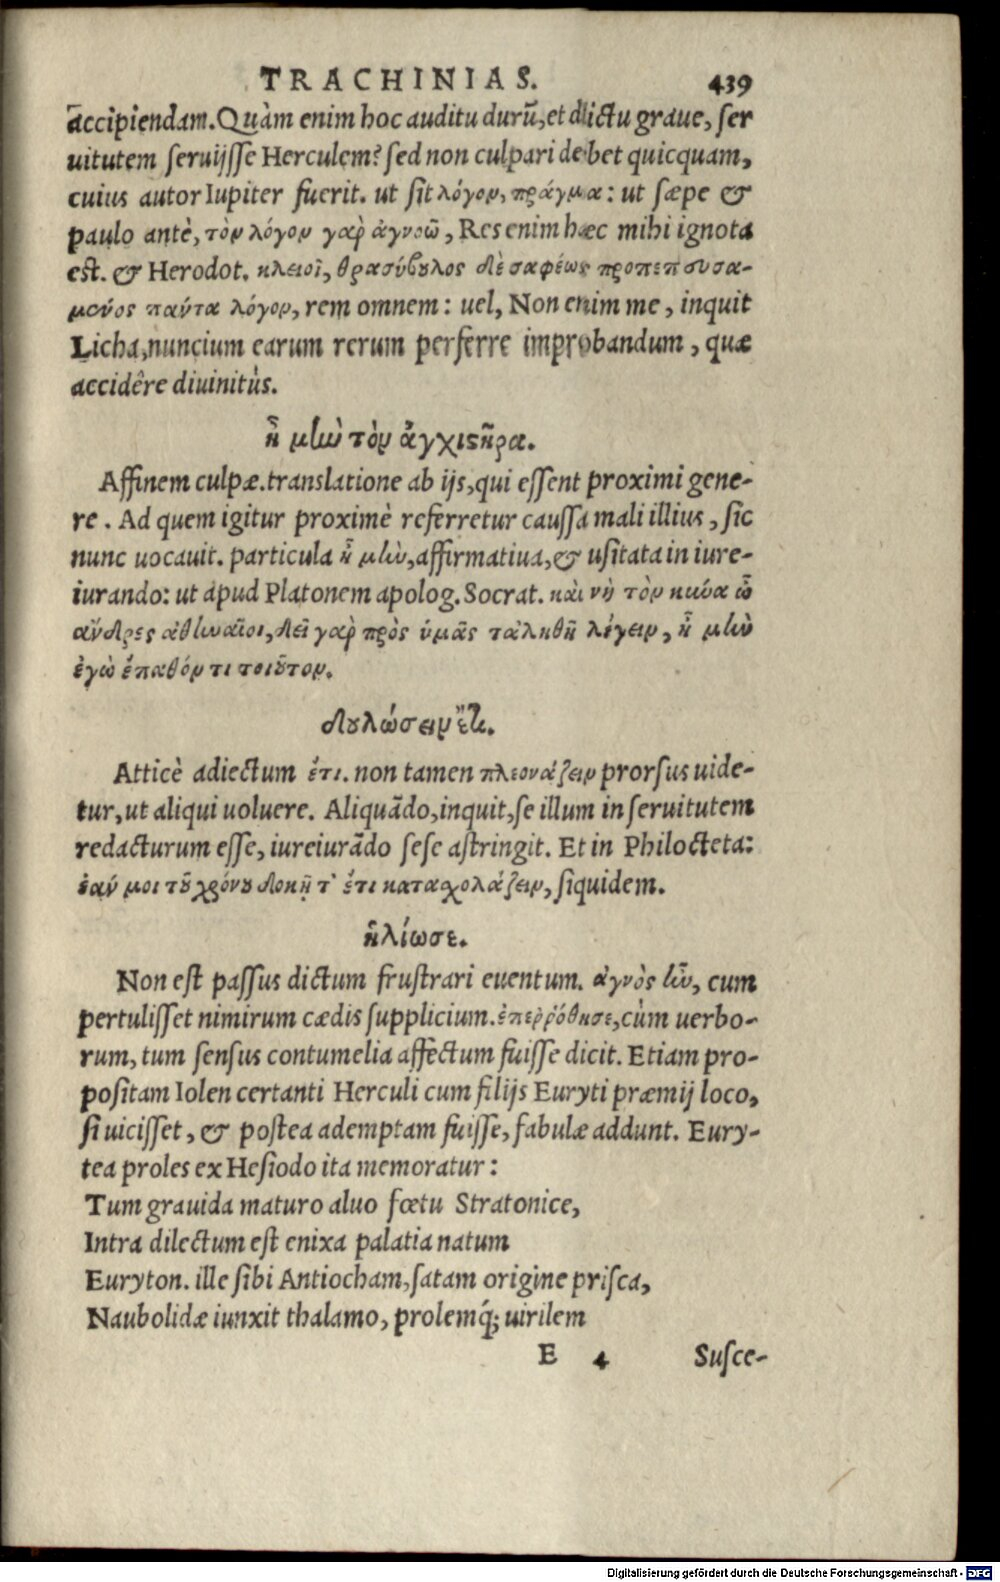 TRACHINIAS. 439
accipiendam. Quàm enim hoc auditu durū, et dictu graue, ser
uitutem seruijsse Herculem? sed non culpari debet quicquam,
cuius autor Iupiter fuerit. ut sit λόγον, πρᾶγμα: ut sæpe &
paulo antè, τὸν λόγον γαρ̀ ἀγνοῶ, Res enim hæc mihi ignota
est. & Herodot. κλειοῖ, θρασύβουλος δὲ σαφέως προπεπυσα-
μενος πάντα λόγον, rem omnem: uel, Non enim me, inquit
Licha, nuncium earum rerum perferre improbandum, quæ
accidêre diuinitùs.
ἦ μὴν τὸν ἀγχιστῆρα.
Affinem culpæ. translatione ab ijs, qui essent proximi gene-
re. Ad quem igitur proximè referretur caussa mali illius, sic
nunc uocauit. particula ἦ μὴν, affirmatiua, & usitata in iure-
iurando: ut apud Platonem apolog. Socrat. καὶ νὴ τὸν κύνα ὦ
ἄνδρες ἀθηναῖοι, δεῖ γαρ̀ πρὸς ὑμᾶς τἀληθῆ λέγειν, ἦ μὴν
ἐγὼ ἔπαθόν τι τοιοῦτον.
δουλώσειν ἔτι.
Atticè adiectum ἔτι. non tamen πλεονάζειν prorsus uide-
tur, ut aliqui uoluere. Aliquādo, inquit, se illum in seruitutem
redacturum esse, iureiurādo sese astringit. Et in Philocteta:
ἐάν μοι τοῦ χρόνου δοκῇ τ' ἔτι κατασχολάζειν, siquidem.
ἠλίωσε.
Non est passus dictum frustrari euentum. ἁγνὸς ὢν, cum
pertulisset nimirum cædis supplicium. ἐπερῤόθησε, cùm uerbo-
rum, tum sensus contumelia affectum fuisse dicit. Etiam pro-
positam Iolen certanti Herculi cum filijs Euryti præmij loco,
si uicisset, & postea ademptam fuisse, fabulæ addunt. Eury-
tea proles ex Hesiodo ita memoratur:
Tum grauida maturo aluo fœtu Stratonice,
Intra dilectum est enixa palatia natum
Euryton. ille sibi Antiocham, satam origine prisca,
Naubolidæ iunxit thalamo, prolemq́; uirilem
E 4 Susce-
Digitalisierung gefördert durch die Deutsche Forschungsgemeinschaft - DFG